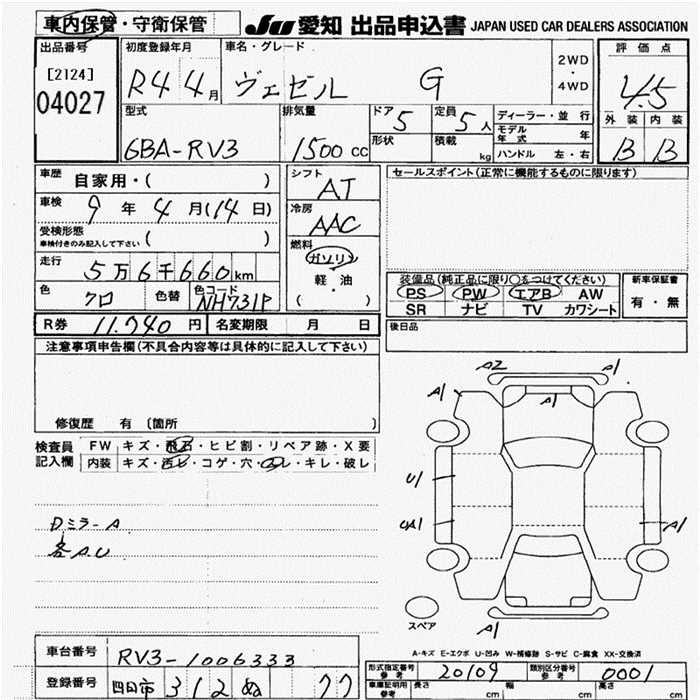 車内保管・守衛保管
JU 愛知 出品申込書 JAPAN USED CAR DEALERS ASSOCIATION
出品番号 初度登録年月 車名・グレード 評価点
[2124] R4 4月 ヴェゼル G 2WD・4WD 4.5
04027
型式 排気量 ドア 5 定員 5人 ディーラー・並行 外装 内装
6BA-RV3 1500cc 形状 積載 kg モデル年式 年 B B
ハンドル 左・右
車歴 自家用・( ) シフト AT セールスポイント(正常に機能するものに限ります)
車検 9年4月(14日) 冷房 AAC
受検形態 車検付きのみ記入して下さい ( ) 燃料 ガソリン
走行 5万6千660km 軽油
・
( )
装備品(純正品に限り○をつけてください) 新車保証書
色 クロ 色替 色コード NH731P PS PW エアB AW 有・無
SR ナビ TV カワシート
R券 11,740円 名変期限 月 日 後日品
注意事項申告欄(不具合内容等は具体的に記入して下さい)
修復歴 有 〔箇所 〕
検査員記入欄 FW キズ・飛石・ヒビ割・リペア跡・X要
内装 キズ・汚レ・コゲ・穴・スレ・キレ・破レ
Dミラ-A
各A.U
A2 A1
A1 A1
U1
UA1 A1
スペア A1
A-キズ E-エクボ U-凹み W-補修跡 S-サビ C-腐食 XX-交換済
車台番号 RV3-1006333
型式指定番号 参考 20109 類別区分番号 参考 0001
登録番号 四日市 312 ぬ 77
車庫証明用 参考 長さ cm 幅 cm 高さ cm